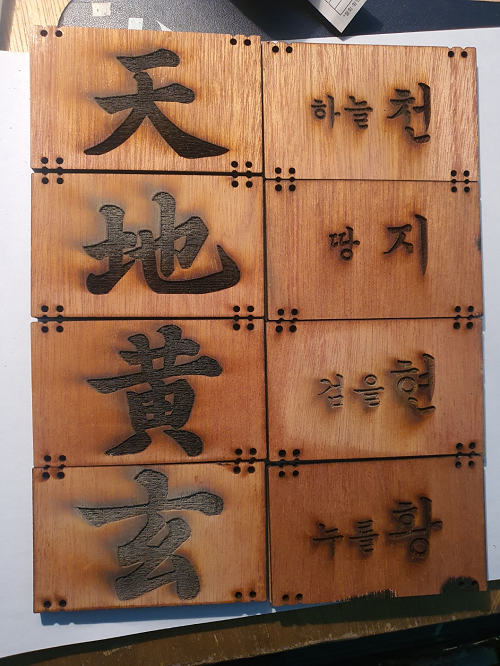 天 하늘 천
地 땅 지
黄 검을 현
玄 누를 황